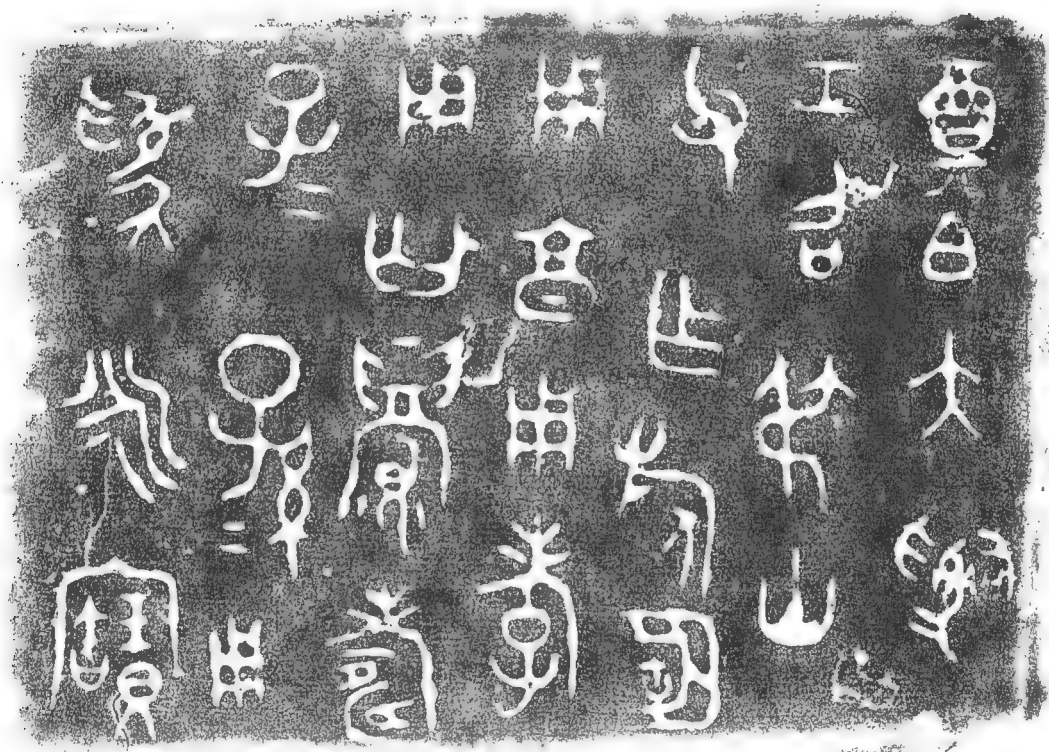 奠白大𤔲
工召弔山
父乍旅𠤳
用亯用孝
用匄眉壽
子＝孫＝用
為永寶